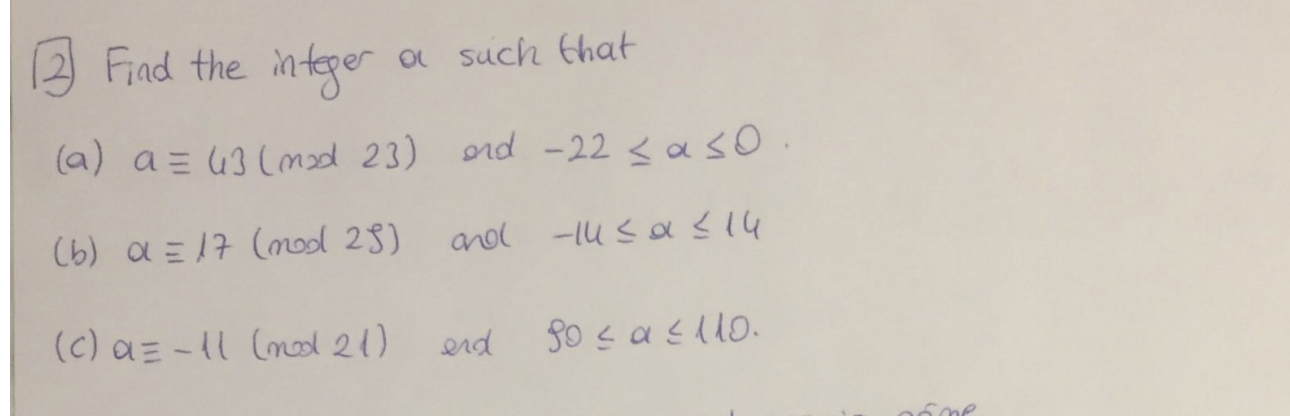 2 Find the integer a such that
(a) a ≡ 43 (mod 23) and -22 ≤ a ≤ 0.
(b) a ≡ 17 (mod 29) and -14 ≤ a ≤ 14
(c) a ≡ -11 (mod 21) and 90 ≤ a ≤ 110.